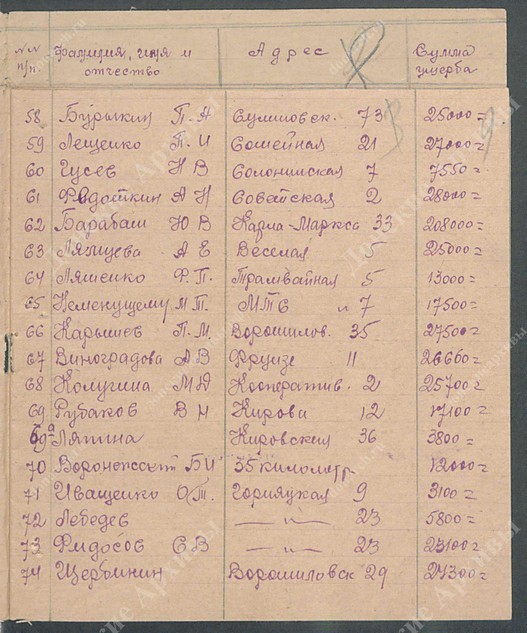 №№ п/п. Фамилия, имя и отчество Адрес Сумма ущерба
58 Бурыкин П.А Сумшовск. 73 25000=
59 Лещенко П.И Семейная 21 27000=
60 Гусев Н В 7 7550=
61 Федоткин А Н Советская 2 28000=
62 Барабаш Ю В Карла-Маркса 33 208000=
63 А Е Веселая 5 25000=
64 Ляшенко Ф.П. Трамвайная 5 13000=
65 М П. МТС " 7 17500=
66 Карышев П.М. Ворошилов. 35 27500=
67 Виноградова А В Фрунзе 11 26660=
68 Калугина М А Кооператив. 2 25700=
69 Рубаков В Н Кирова 12 17100=
69а Ляпина Кировский 36 3800=
70 Б И 35 километр 12000=
71 Иващенко О.Т. Горняцкая 9 3100=
72 Лебедев — " — 23 5800=
73 Фидосов С В — " — 23 23100=
74 Щербинин Ворошиловск 29 27300=